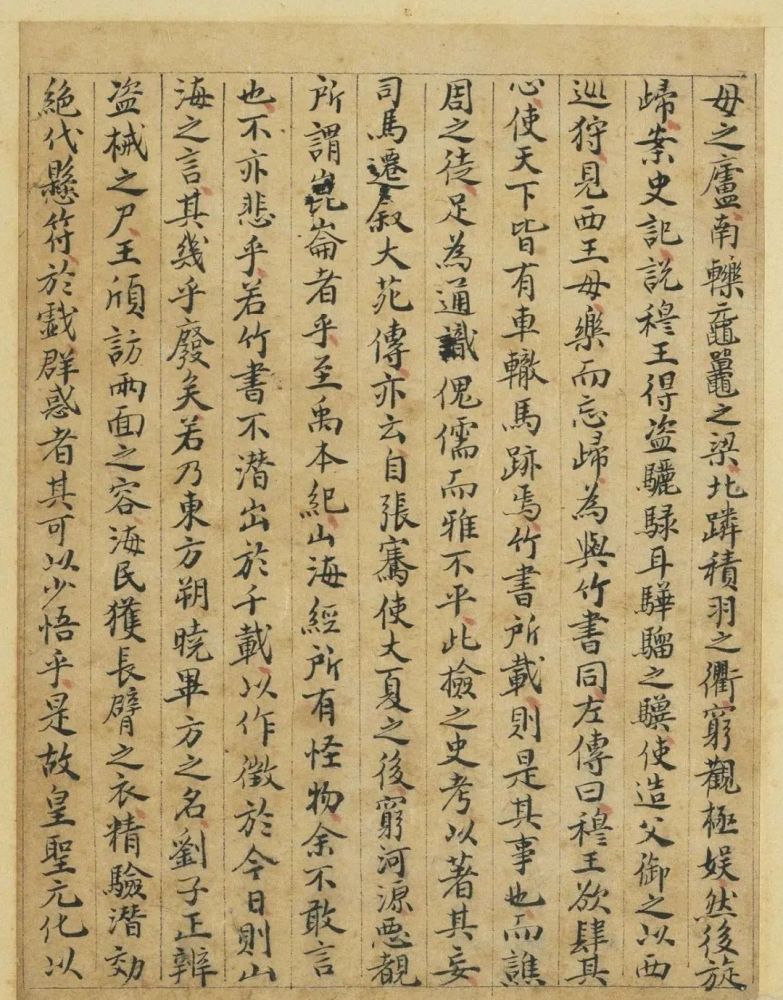 母之廬南轢黿鼉之梁北躡積羽之衢窮觀極娛然後旋
歸案史記說穆王得盗驪騄耳驊騮之驥使造父御之以西
巡狩見西王母樂而忘歸為與竹書同左傳曰穆王欲肆其
心使天下皆有車轍馬跡焉竹書所載則是其事也而譙
周之徒足為通識傀儒而雅不平此檢之史考以著其妄
司馬遷叙大苑傳亦云自張騫使大夏之後窮河源惡覩
所謂崑崙者乎至禹本紀山海經所有怪物余不敢言
也不亦悲乎若竹書不潛出於千載以作徵於今日則山
海之言其幾乎廢矣若乃東方朔曉畢方之名劉子正辨
盗械之尸王頎訪兩面之容海民獲長臂之衣精驗潛効
絕代懸符於戲群惑者其可以少悟乎是故皇聖元化以